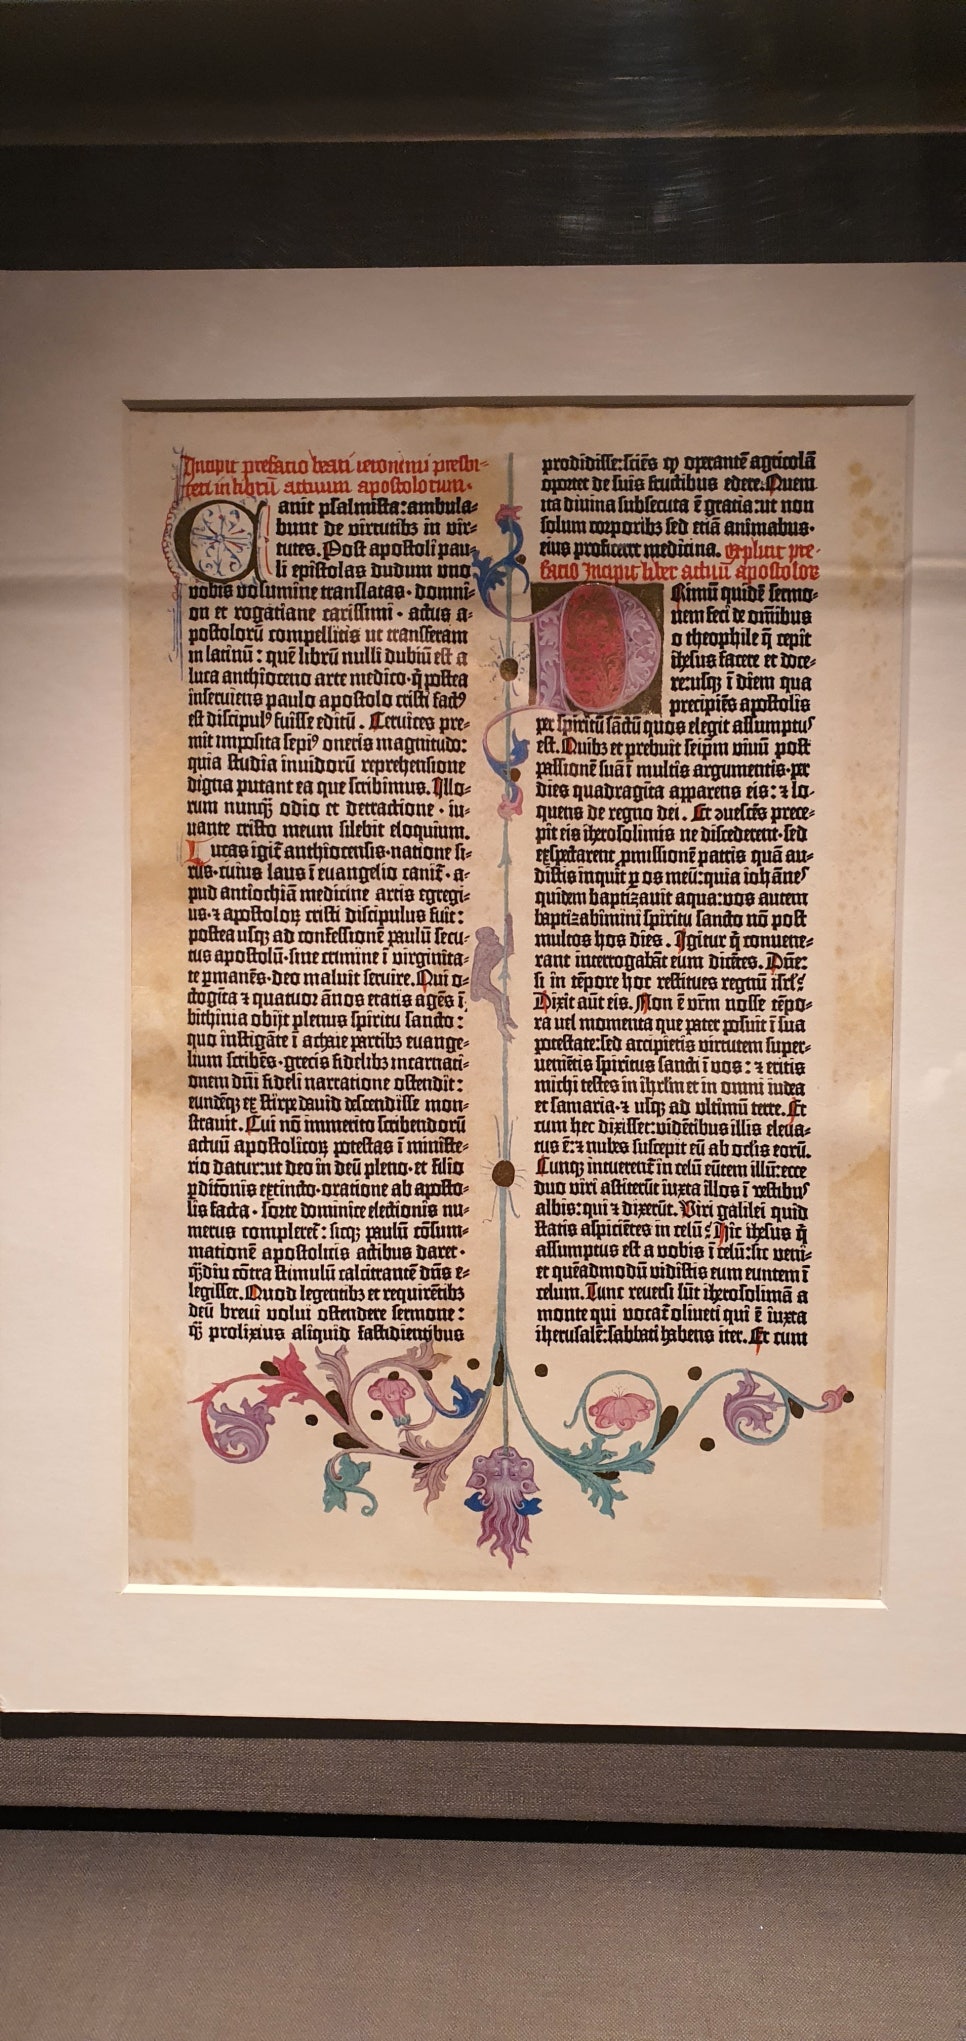 Incipit prefatio beati ieronimi presbi-
teri in librū actuum apostolorum·
Canit psalmista: ambula-
bunt de virtutibꝫ in vir-
tutes. Post apostoli pau-
li epistolas dudum uno
vobis volumine translatas· domni-
on et rogatiane carissimi· actus a-
postolorū compellitis ut transferam
in latinū: quē librū nulli dubiū est a
luca anthioceno arte medico· q̄ postea
inseruiens paulo apostolo cristi factꝰ
est discipulꝰ fuisse editū. Ceruices pre-
mit imposita sepiꝰ oneris magnitudo:
quia studia inuidorū reprehensione
digna putant ea que scribimus. Illo-
rum nunqꝫ odio et detractione· iu-
uante cristo meum silebit eloquium.
Lucas igit̄ anthiocensis· natione si-
rus· cuius laus ī evangelio canit̄· a-
pud antiochiā medicine artis egregi-
us· ⁊ apostoloꝝ cristi discipulus fuit:
postea usqꝫ ad confessionē paulū secu-
tus apostolū· sine crimine ī virginita-
te ꝑmanēs· deo maluit seruire. Qui o-
ctogīta ⁊ quatuor ānos etatis agēs ī
bithinia obijt plenus spiritu sancto:
quo instigāte ī achaie partibꝫ euange-
lium scribēs· grecis fidelibꝫ incarnati-
onem dn̄i fideli narratione ostendit:
eundēqꝫ ex stirpe dauid descendisse mon-
strauit. Cui nō immerito scribendorū
actuū apostolicoꝝ potestas ī ministe-
rio datur: ut deo in deū pleno· et filio
ꝑditōnis extincto· oratione ab aposto-
lis facta· sorte dominice electionis nu-
merus compleret̄: sicqꝫ paulū cōsum-
mationē apostolicis actibus daret·
q̄ꝫdiu cōtra stimulū calcitrantē dn̄s e-
legisset. Quod legentibꝫ et requirētibꝫ
deū breui volui ostendere sermone:
q̄ꝫ prolixius aliquid fastidientibus
prodidisse: sciēs ꝙ operantē agricolā
oportet de suis fructibus edere. Quem
ita diuina subsecuta ē gratia: ut non
solum corporibꝫ sed etiā animabus·
eius proficeret medicina. Explicit pre-
facio Incipit liber actuū apostoloꝝ
Primū quidē sermo-
nem feci de om̄ibus
o theophile q̄ cepit
ihesus facere et doce-
re: usqꝫ ī diem qua
precipiēs apostolis
per spiritū sāctū quos elegit assumptꝰ
est. Quibꝫ et prebuit seip̄m viuū post
passionē suā ī multis argumentis· per
dies quadragīta apparens eis: ⁊ lo-
quens de regno dei. Et ꝯuescēs prece-
pit eis iherosolimis ne discederent· sed
expectarent ꝓmissionē patris quā au-
distis inquit ꝑ os meū: quia iohānes
quidem baptizauit aqua: vos autem
baptizabimini spiritu sancto nō post
multos hos dies. Igitur q̄ conuene-
rant interrogabāt eum dicētes. Dn̄e:
si in tēpore hoc restitues regnū isrl̄?
Dixit aut̄ eis. Non ē vr̄m nosse tēpo-
ra uel momenta que pater posuit ī sua
potestate: sed accipietis virtutem super-
ueniētis spiritus sancti ī vos: ⁊ eritis
michi testes in ihrl̄m et in omni iudea
et samaria· ⁊ usqꝫ ad vltimū terre. Et
cum hec dixisset: vidētibus illis eleua-
tus ē: ⁊ nubes suscepit eū ab oculis eorū.
Cunqꝫ intuerent̄ in celū eūtem illū: ecce
duo viri astiterūt iuxta illos ī vestibꝰ
albis: qui ⁊ dixerūt. Viri galilei quid
statis aspiciētes in celū? Hic ihesus q̄
assumptus est a vobis ī celū: sic veni-
et quēadmodū vidistis eum euntem ī
celum. Tunc reuersi sūt iherosolimā a
monte qui vocat̄ oliueti qui ē iuxta
iherusalē: sabbati habens iter. Et cum